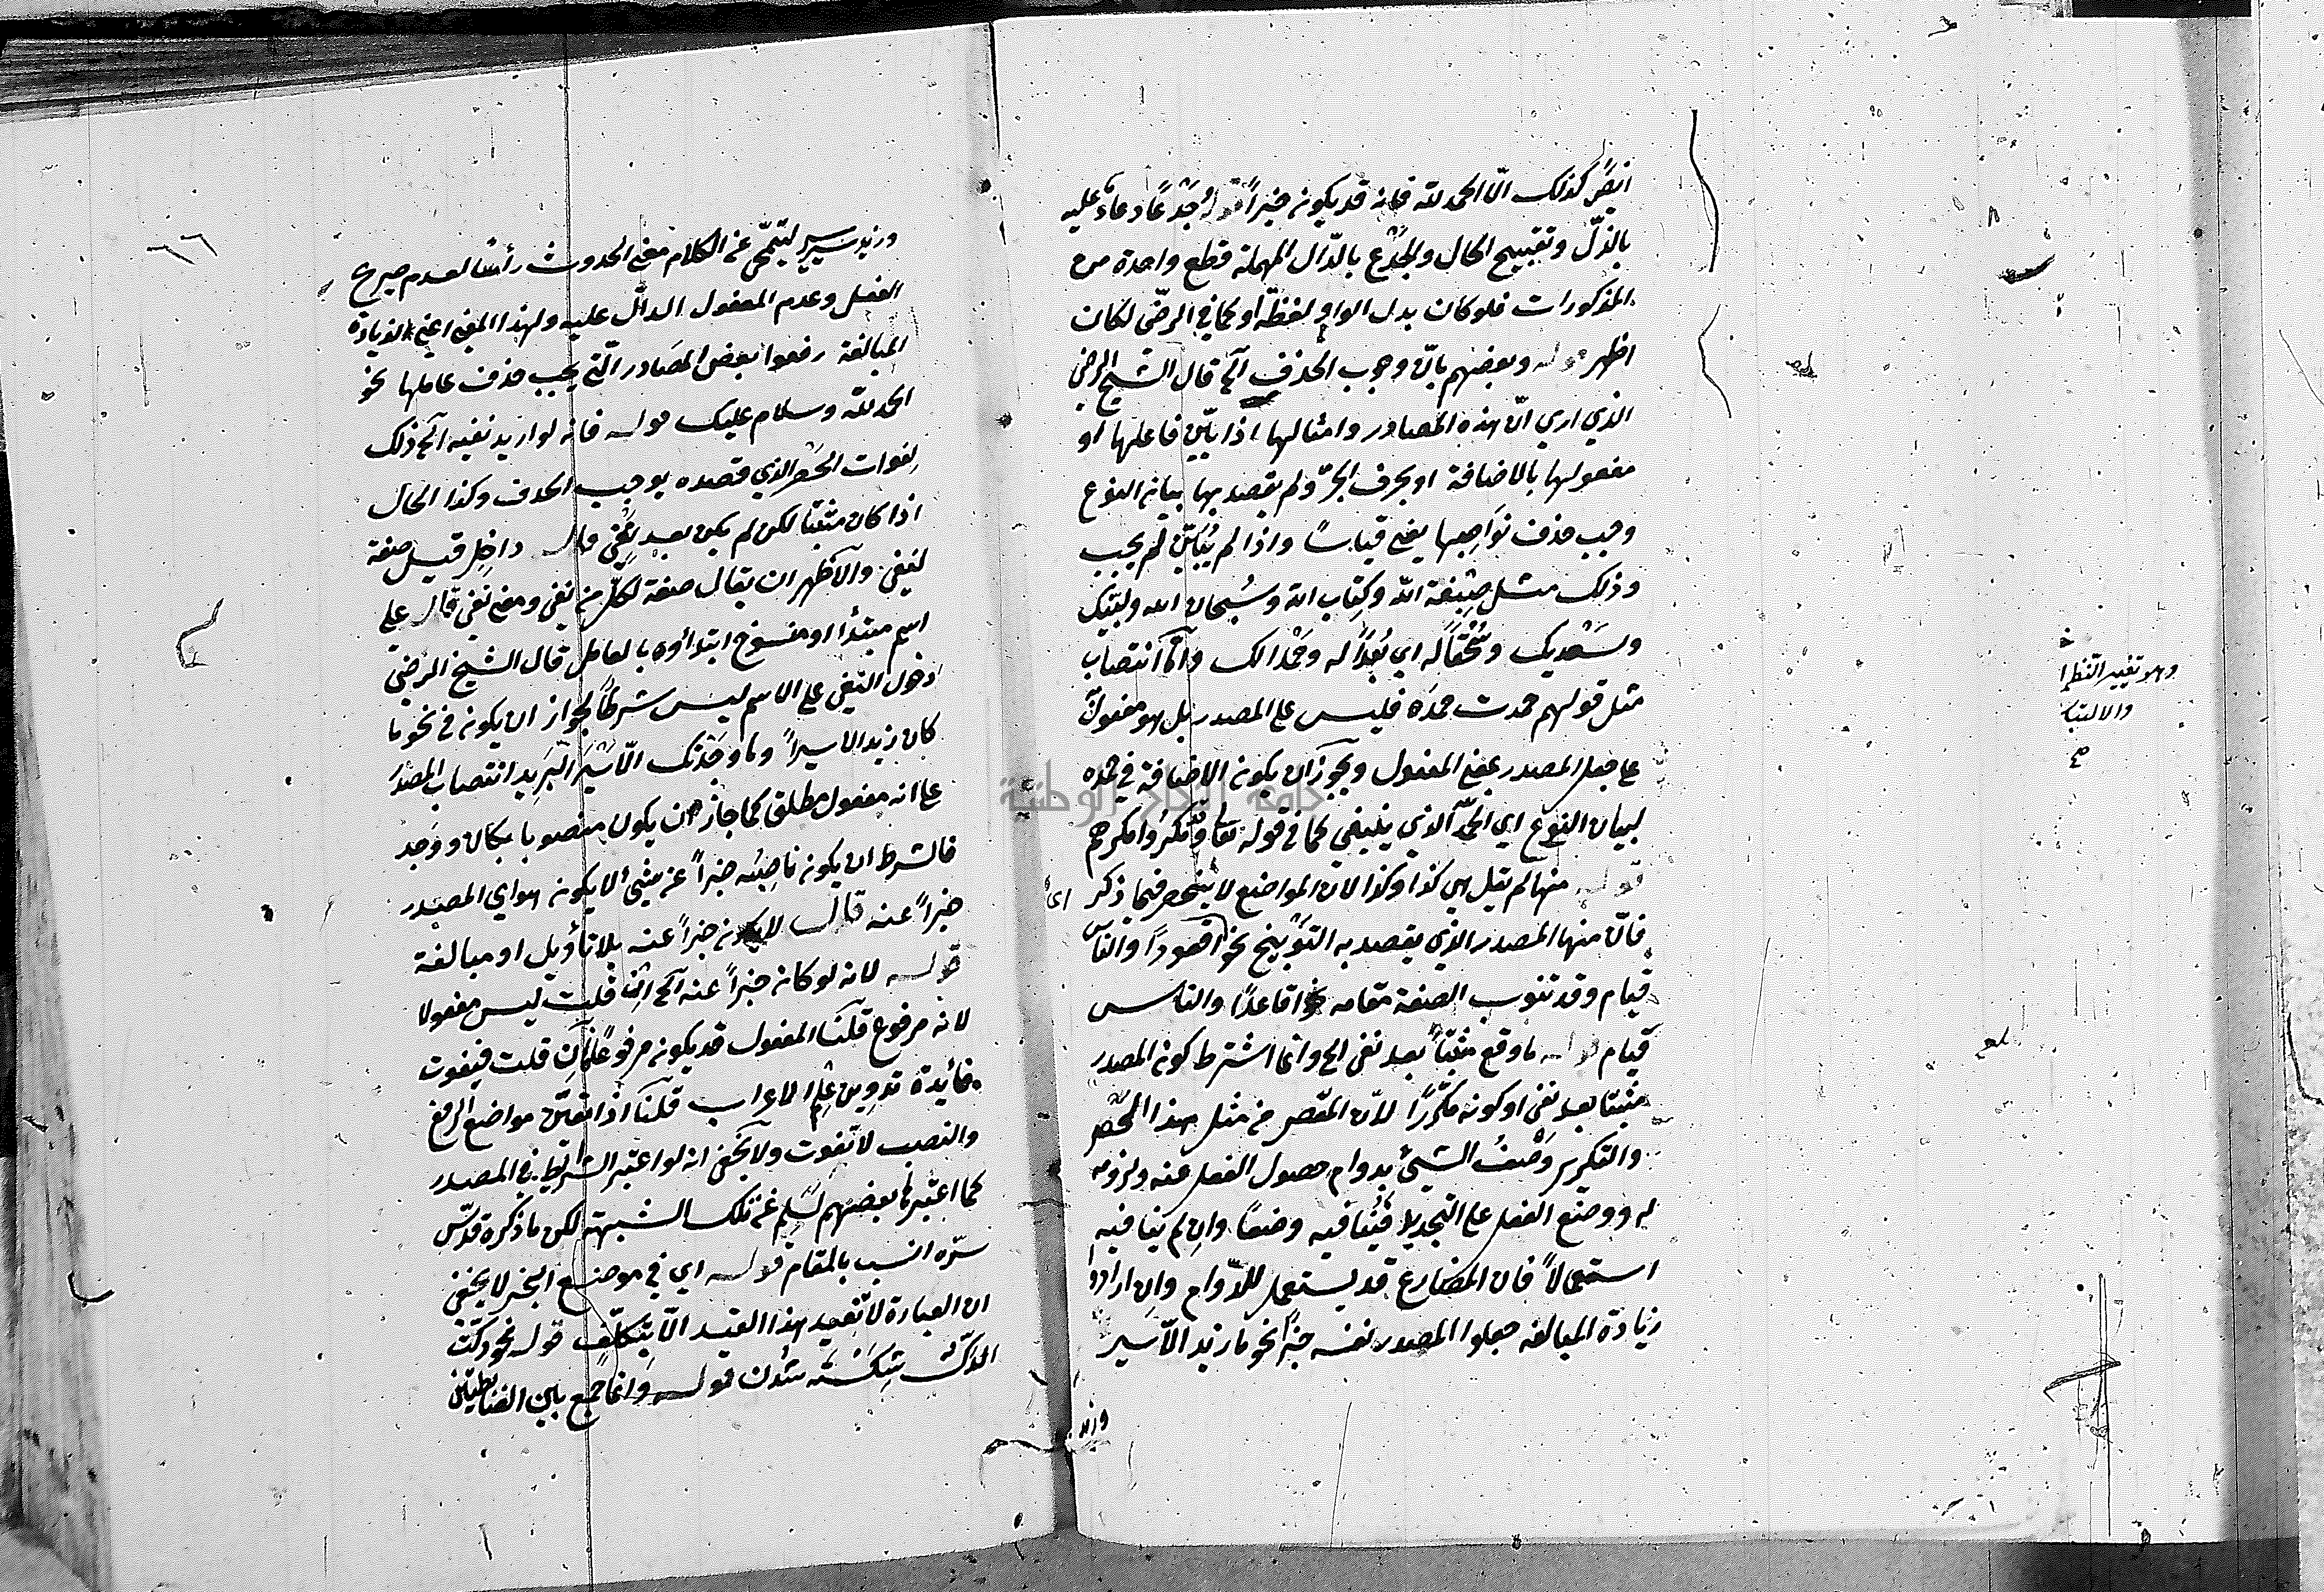 ايضًا كذلك الّا الحمد لله فانه قد يكون خبراً قوله جَدْعًا دعاءٌ عليه
بالذلّ وتقبيح الحال والجَدْع بالدّال المهملة قطع واحدة من
المذكورات فلو كان بدل الواو لفظة أو كما في الرضّى لكان
اظهر قوله وبعضهم بانّ وجوب الحذف آلخ قال الشيخ الرضى
الذي اري انّ هذه المصادر وامثالها اذا بيّن فاعلها او
مفعولها بالاضافة او بحرف الجرّ ولم يقصد بها بيان النوع
وجب حذف نواصبها يعني قياسًا واذا لم يُبَيّن لم يجب
وذلك مثل صِبْغة الله وكِتاب الله وسُبحان الله ولبّيك
وسَعْديك وسُحْقًا له اي بُعْدًا له وحَمْدا لك وامّا انتصاب
مثل قولهم حمدت حمدَه فليس على المصدر بل هو مفعول
على جعل المصدر بمعنى المفعول ويجوز ان يكون الاضافة في حمده
لبيان النوع اي الحمد الذي ينبغي كما في قوله تعالى وقد مكروا مكرهم
قوله منها لم يقل اي كذا وكذا لان المواضع لا ينحصر فيما ذكر
فانّ منها المصدر الذي يقصد به التَوْبيخ نحو أقعودًا والناس
قيام وقد تنوب الصفة مقامه نحو اقاعدًا والناس
قيام قوله ما وقع مثبتاً بعد نفى الخ وانما اشترط كون المصدر
مثبتا بعد نفى او كونه مكرّرًا لانّ المقصر من مثل هذا الحصر
والتكرير وَصْفُ الشيئ بدوام حصول الفعل عنه ولزومه
له ووضع الفعل على التجديد فيُنافيه وضعًا وان لم ينافيه
استعمالاً فان المضارع قد يستعمل للدّوام وان ارادوا
زيادة المبالغه جعلوا المصدر نفسه خبراً نحو ما زيد الّا سير
وزيد
وهو تغيير النظم
والالتباس
صح
وزيد سير سير ليتمحّى عن الكلام معنى الحدوث رأسًا لعدم صريح
الفعل وعدم المفعول الدالّ عليه ولهذا المعنى اعني زيادة
المبالغة رفعوا بعض المصَادر الّتي يجب حذف عاملها نحو
الحمد لله وسلام عليك قوله فانه لو اريد نفيه آلخ ذلك
لِفوات الحَصْر الذي قصده يوجب الحذف وكذا الحال
اذا كان مثبتا لكن لم يكن بعد نفي قال داخل قيل صفة
لنفى والاظهر ان يقال صفة لكلّ من نفى ومعنى نفى قال على
اسم مبتدأ او منسوخ ابتداؤه بالعامل قال الشيخ الرضى
دخول النفى على الاسم ليس شرطاً لجواز ان يكون في نحو ما
كان زيد الا سيراً وما وجَدْتك الّا سَيْرَ البَريد انتصاب المصدر
على انه مفعول مطلق كما جاز ان يكون منصوبا بكان ووجد
فالشرط ان يكون ناصِبُه خبراً عن شيئ لا يكون هو اي المصدر
خبراً عنه قال لا يكون خبراً عنه بلا تأويل او مبالغة
قوله لانه لو كان خبراً عنه آلخ ان قلت ليس مفعولا
لانه مرفوع قلنا المفعول قد يكون مرفوعًا فان قلت فيفوت
فائدة تدوين علم الاعراب قلنا اذا تعيّن مواضع الرفع
والنصب لا تفوت ولا يخفى انه لو اعتبر الشرائط في المصدر
كما اعتبرها بعضهم لسلم عن تلك الشبهة لكن ما ذكره قدّس
سرّه انسب بالمقام قوله اي في موضع الخبر لا يخفى
ان العبارة لا تفيد هذا القيد الّا بتكلّف قوله نحو دكّت
الدكّ شكسته شدن قوله وانما جمع بين الضابطتين